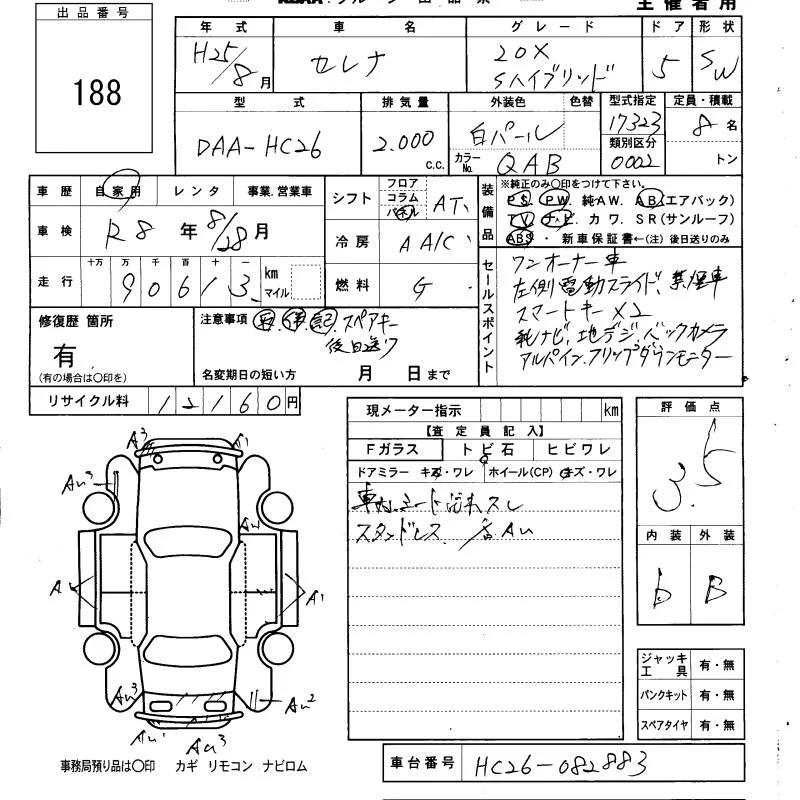 出品番号
188
主催者用
年式 車名 グレード ドア 形状
H25/8月 セレナ 20X Sハイブリッド 5 SW
型式 排気量 外装色 色替 型式指定 定員・積載
DAA-HC26 2.000 c.c. 白パール 17323 8名
カラーNo. QAB 類別区分 0002 トン
車歴 自家用 レンタ 事業.営業車
車検 R8年8/28月
走行 十万 万 千 百 十 一
90613 km マイル
シフト フロア コラム パネル AT
冷房 AAC
燃料 G
装備品
※純正のみ〇印をつけて下さい。
PS PW 純AW. AB(エアバック)
TV ナビ カワ SR(サンルーフ)
ABS ・ 新車保証書←(注) 後日送りのみ
セールスポイント
ワンオーナー車
左側電動スライド、禁煙車
スマートキー×2
純ナビ、地デジ、バックカメラ
アルパイン、フリップダウンモニター
修復歴 箇所
有
(有の場合は〇印を)
注意事項 取.保.記.スペアキー
後日送り
名変期日の短い方 月 日まで
リサイクル料 12160円
現メーター指示 km
【査定員記入】
Fガラス トビ石 ヒビワレ
ドアミラー キズ・ワレ ホイール(CP) キズ・ワレ
車内シート汚れスレ
スタッドレス
AU
評価点
3.5
内装 外装
b B
A3 A1
AU3
AW
A A1
AU3 AU2
AU1 AU3
ジャッキ工具 有・無
パンクキット 有・無
スペアタイヤ 有・無
事務局預り品は〇印 カギ リモコン ナビロム
車台番号 HC26-082883